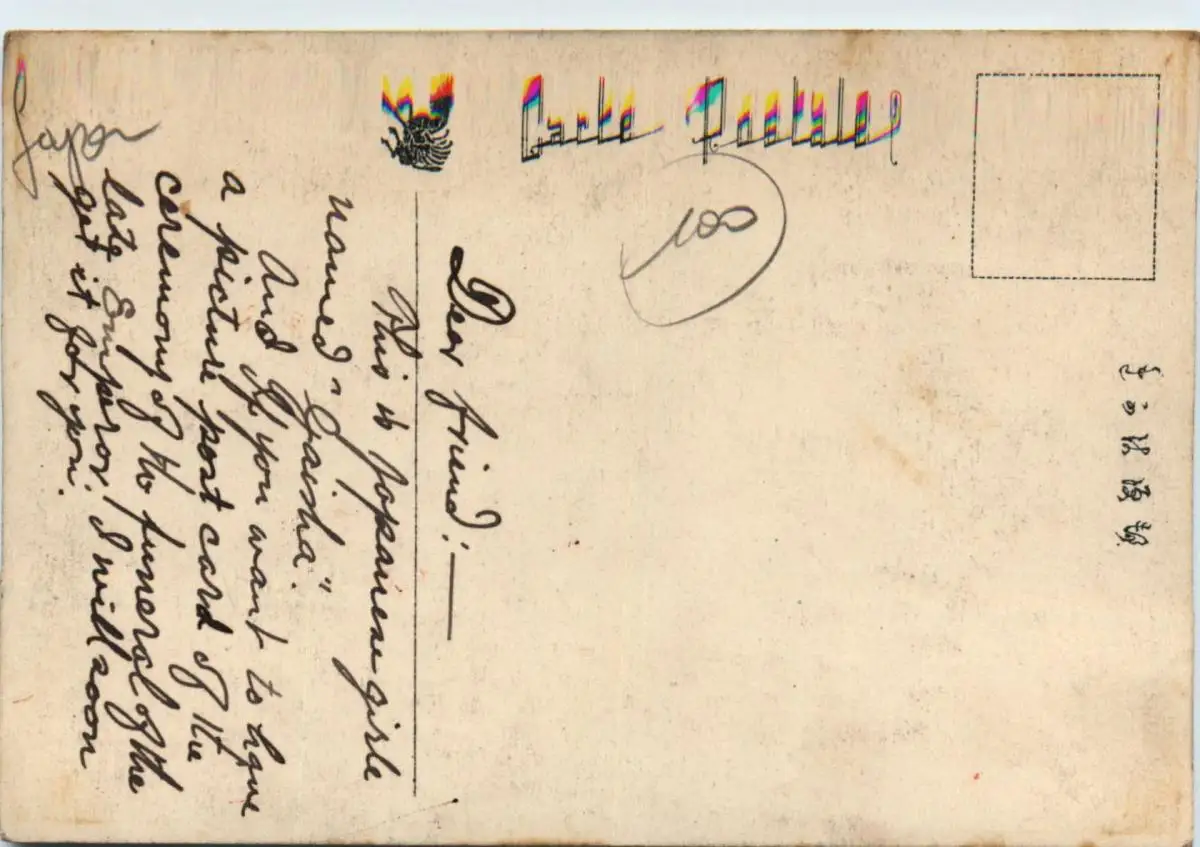 Carte Postale
Japan
Dear friend:—
This is Japanese girle
named "Gaisha".
And If you want to have
a picture post card of the
ceremony of the funeral of the
late Emperor, I will soon
get it for you.